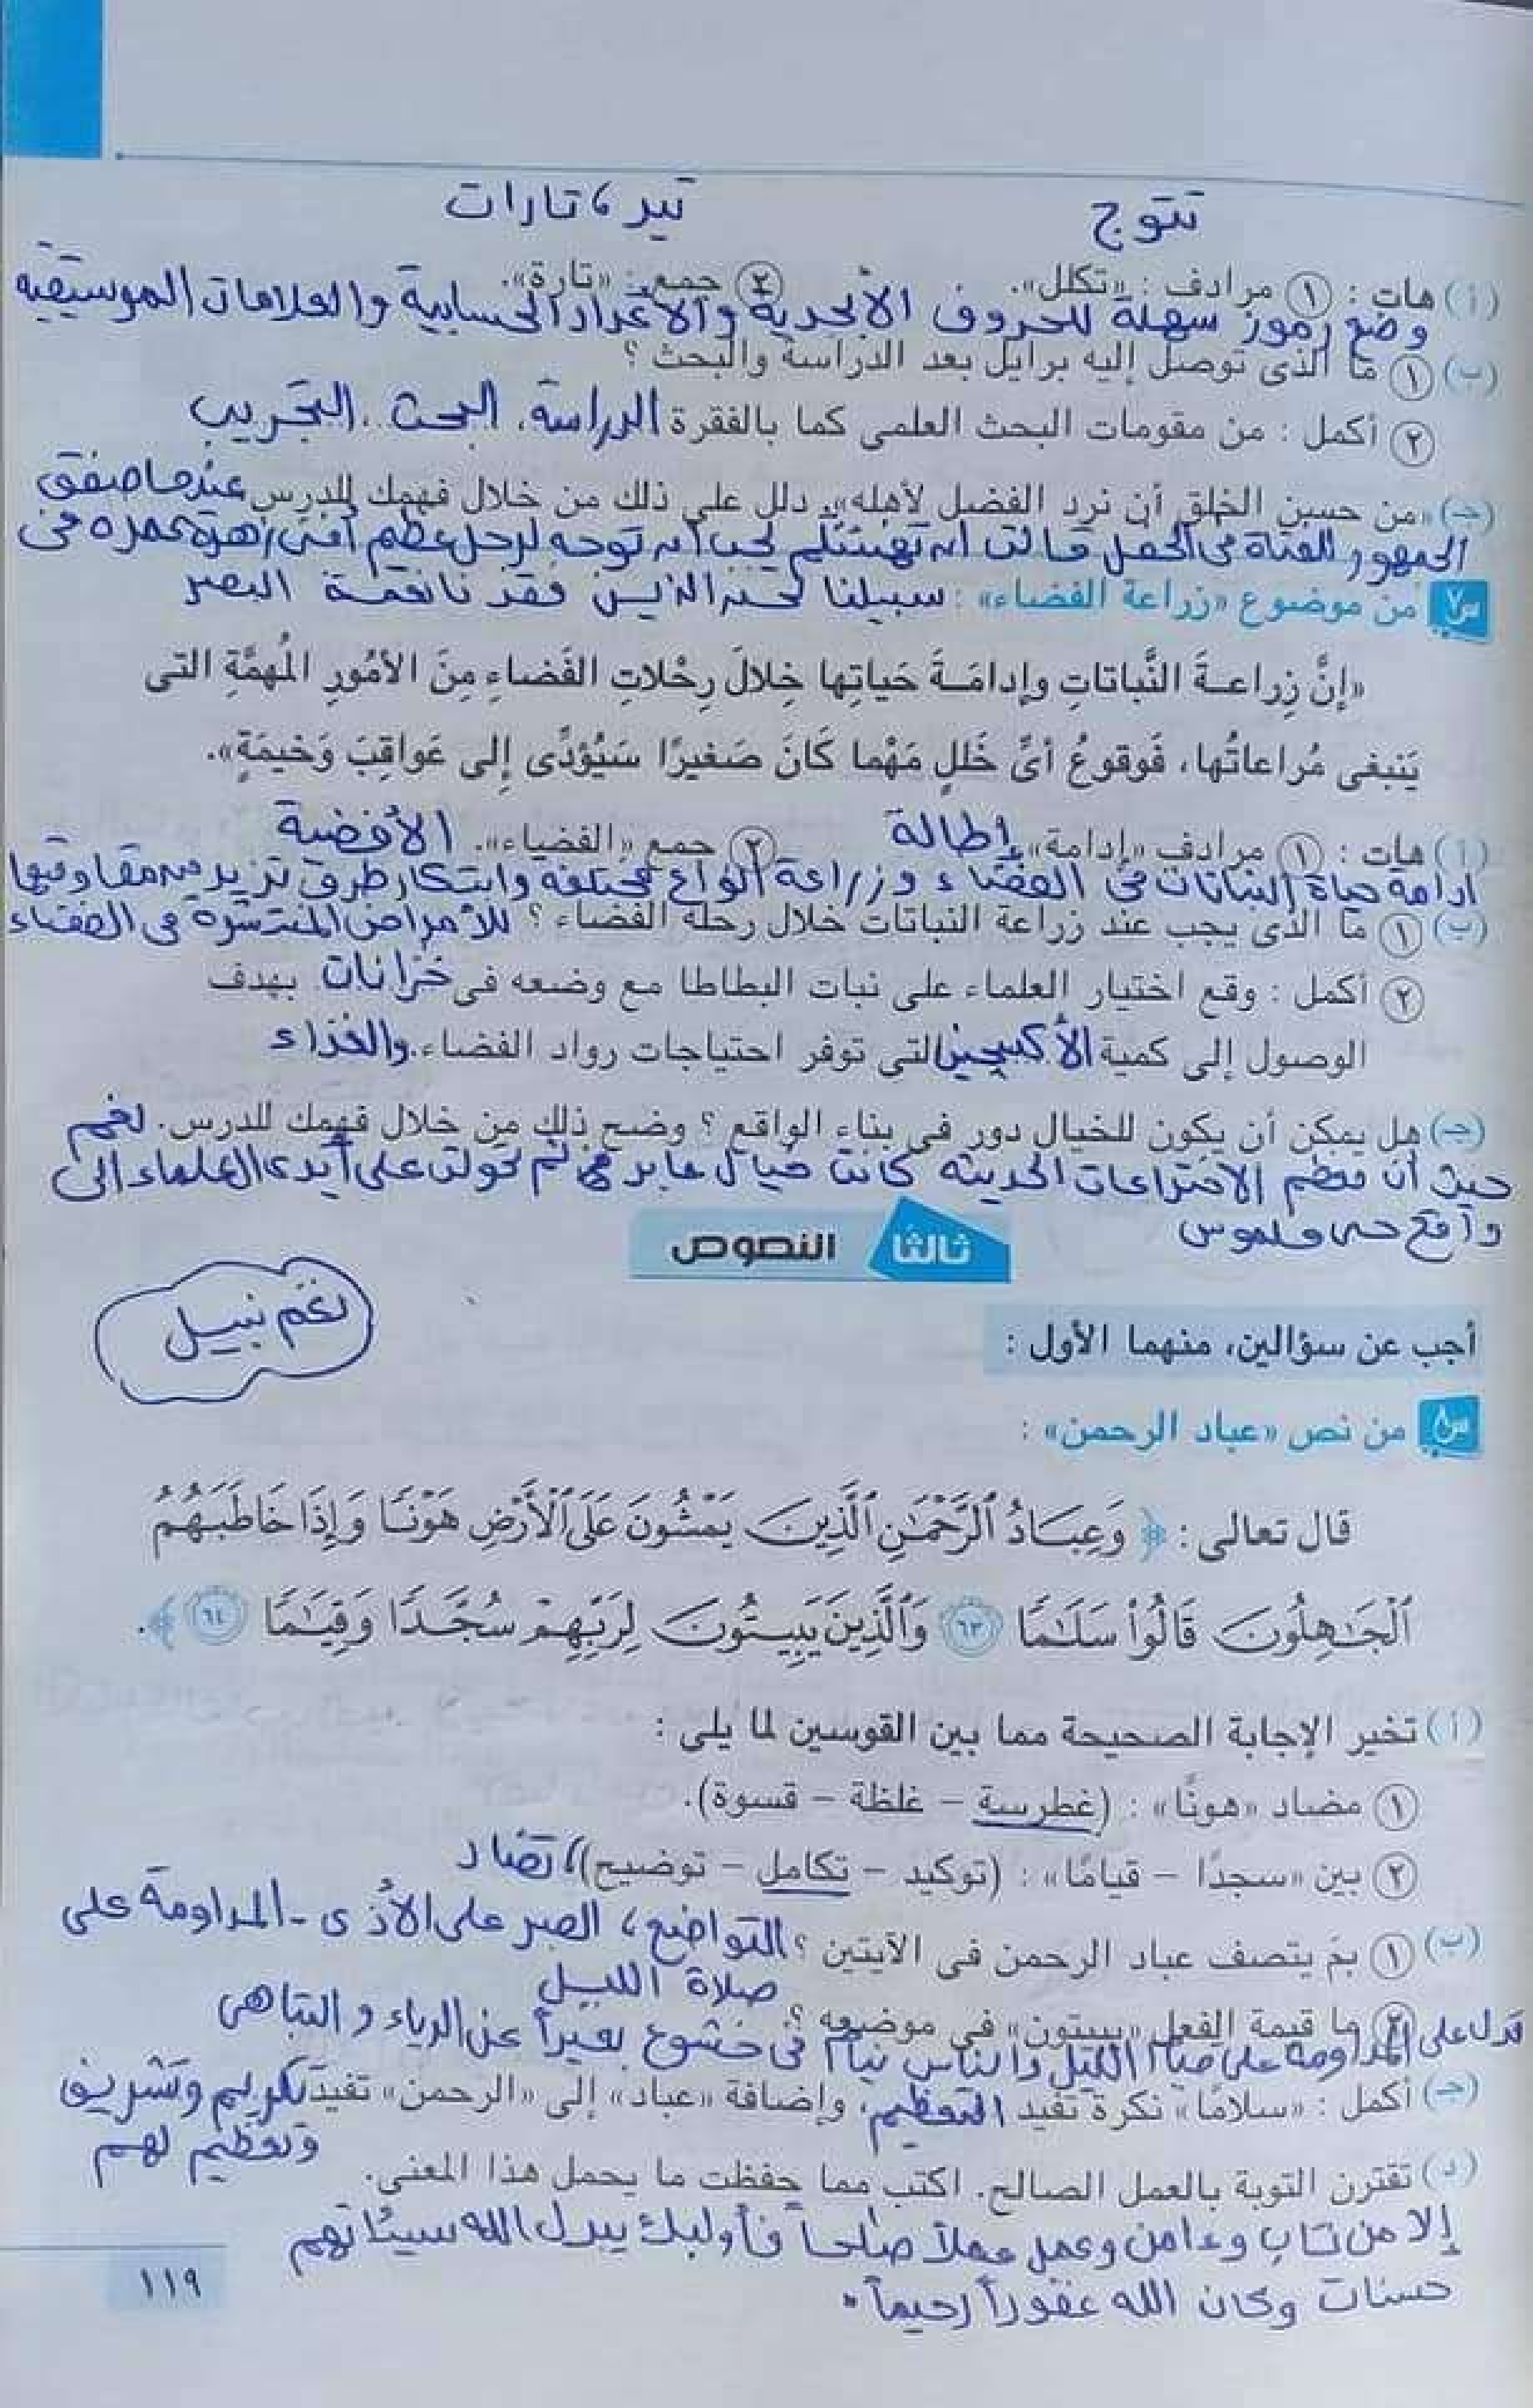 تتوج
تير، تارات
(أ) هات : ① مرادف : «تكلل». ② جمع : «تارة».
وضع رموز سهلة للحروف الأبجدية والأعداد الحسابية والعلامات الموسيقية
(ب) ① ما الذى توصل إليه برايل بعد الدراسة والبحث ؟
② أكمل : من مقومات البحث العلمى كما بالفقرة الدراسة، البحث .. التجريب
(جـ) «من حسن الخلق أن نرد الفضل لأهله»، دلل على ذلك من خلال فهمك للدرس. عندما صفق
الجمهور للفتاة فى الحفل قالت إن تهنئتكم يجب أن توجه لرجل عظيم أفنى زهرة عمره فى
س٧ من موضوع «زراعة الفضاء» : سبيلنا نحن الذين فقدنا نعمة البصر
«إنَّ زِراعـةَ النَّباتاتِ وإدامَـةَ حَياتِها خِلالَ رِحْلاتِ الفَضاءِ مِنَ الأمُورِ المُهمَّةِ التى
يَنبغى مُراعاتُها، فَوقوعُ أىِّ خَللٍ مَهْما كَانَ صَغيرًا سَيُؤدِّى إلى عَواقِبَ وَخيمَةٍ».
(أ) هات : ① مرادف «إدامة». إطالة ② جمع «الفضاء». الأفضية
إدامة حياة النباتات فى الفضاء وزراعة أنواع مختلفة وابتكار طرق تزيد من مقاومتها
(ب) ① ما الذى يجب عند زراعة النباتات خلال رحلة الفضاء ؟ للأمراض المنتشرة فى الفضاء
② أكمل : وقع اختيار العلماء على نبات البطاطا مع وضعه فى خزانات بهدف
الوصول إلى كمية الأكسجين التى توفر احتياجات رواد الفضاء. والغذاء
(جـ) هل يمكن أن يكون للخيال دور فى بناء الواقع ؟ وضح ذلك من خلال فهمك للدرس. نعم
حيث أن معظم الاختراعات الحديثة كانت خيال عابر ثم تحولت على أيدى العلماء إلى
واقع حى ملموس
ثالثًا النصوص
نغم نبيل
أجب عن سؤالين، منهما الأول :
س٨ من نص «عباد الرحمن» :
قال تعالى : ﴿ وَعِبَادُ ٱلرَّحْمَٰنِ ٱلَّذِينَ يَمْشُونَ عَلَى ٱلْأَرْضِ هَوْنًا وَإِذَا خَاطَبَهُمُ
ٱلْجَٰهِلُونَ قَالُوا۟ سَلَٰمًا ٦٣ وَٱلَّذِينَ يَبِيتُونَ لِرَبِّهِمْ سُجَّدًا وَقِيَٰمًا ٦٤ ﴾.
(أ) تخير الإجابة الصحيحة مما بين القوسين لما يلى :
① مضاد «هونًا» : (غطرسة – غلظة – قسوة).
② بين «سجدًا – قيامًا» : (توكيد – تكامل – توضيح)، تضاد
(ب) ① بمَ يتصف عباد الرحمن فى الآيتين ؟ التواضع، الصبر على الأذى - المداومة على
صلاة الليل
② ما قيمة الفعل «يبيتون» فى موضعه ؟
تدل على المداومة على صلاة الليل والناس نيام فى خشوع بعيداً عن الرياء والتباهى
(جـ) أكمل : «سلامًا» نكرة تفيد التعظيم، وإضافة «عباد» إلى «الرحمن» تفيد تكريم وتشريف
وتعظيم لهم
(د) تقترن التوبة بالعمل الصالح. اكتب مما حفظت ما يحمل هذا المعنى.
إلا من تاب وءامن وعمل عملاً صالحاً فأولئك يبدل الله سيئاتهم
حسنات وكان الله غفوراً رحيماً"
١١٩